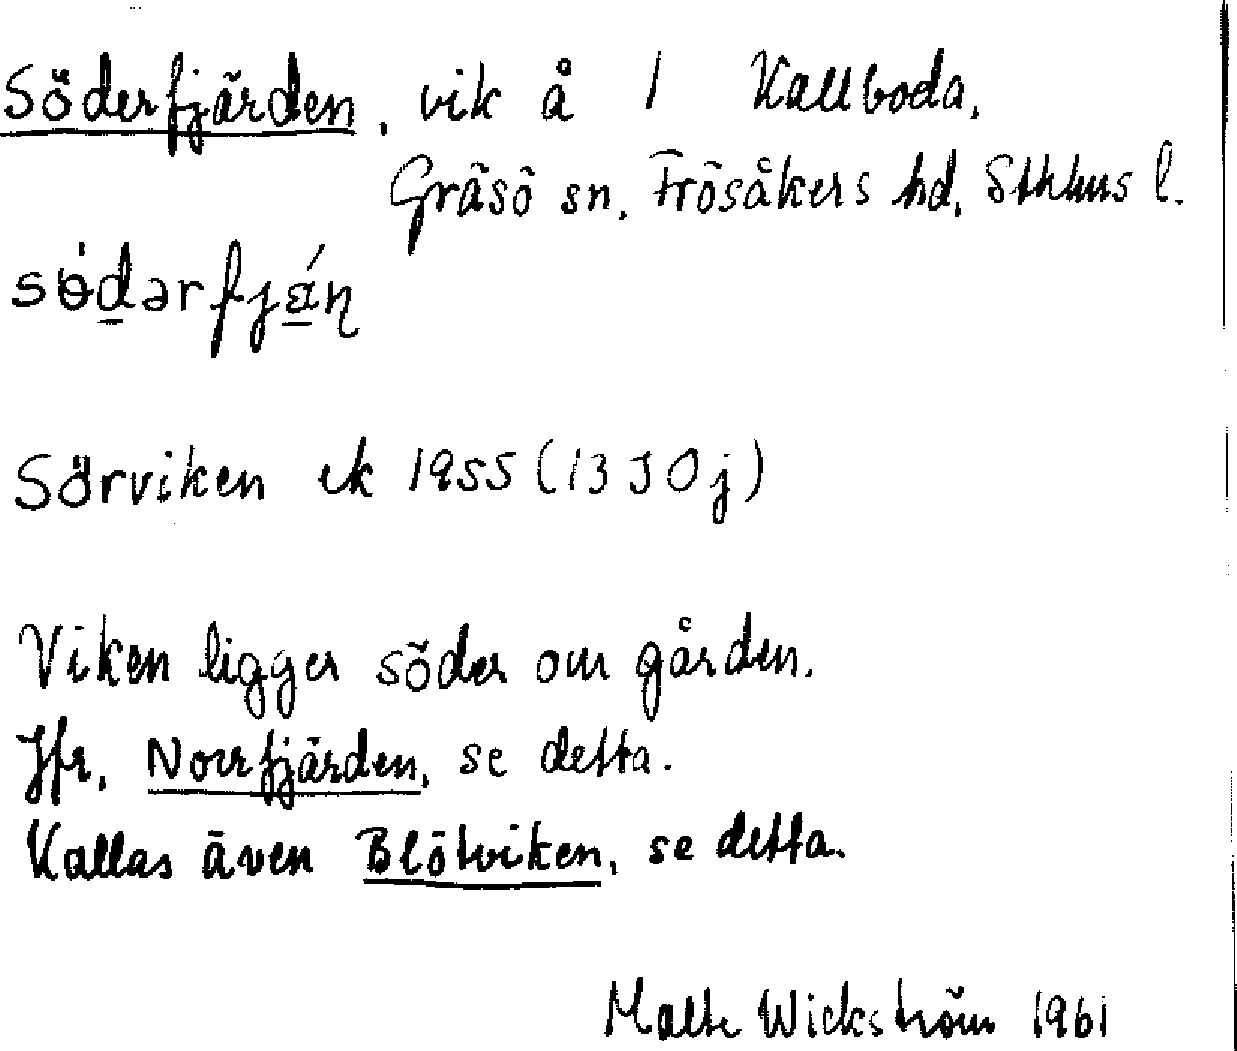 Söderfjärden, vik å 1 Kallboda,
Gräsö sn, Frösåkers hd, Sthlms l.
södərfjän
Sörviken ek 1955 (13 J 0 j)
Viken ligger söder om gården.
Jfr, Norrfjärden, se detta.
Kallas även Blötviken, se detta.
Malte Wickström 1961